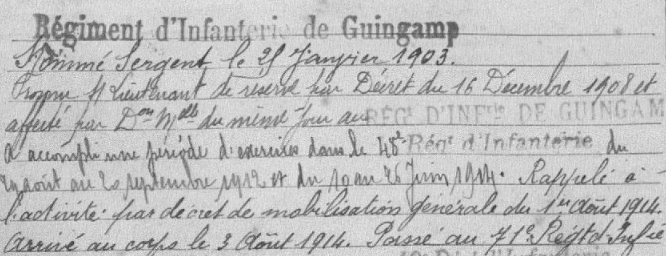 Régiment d'Infanterie de Guingamp
Nommé Sergent le 25 Janvier 1903.
Promu S/ Lieutenant de réserve par Décret du 16 Décembre 1908 et
affecté par Don Mlle du même jour au RÉGt D'INFrie DE GUINGAM
A accompli une période d'exercices dans le 48e Régt d'Infanterie du
août au 20 septembre 1912 et du 10 au 26 Juin 1914. Rappelé à
l'activité par décret de mobilisation générale du 1er Août 1914.
Arrivé au corps le 3 Août 1914. Passé au 71e Régt d'Infie
d'Infanterie